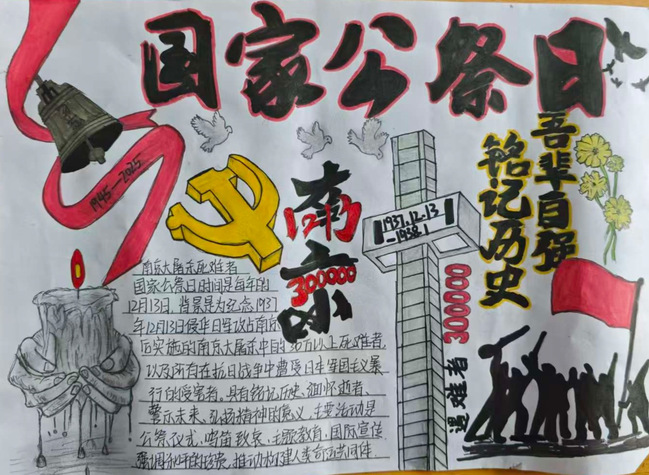 国家公祭日
1945—2025
南京
12.13
300000
1937.12.13
—1938.1
遇难者 300000
铭记历史
吾辈自强
南京大屠杀死难者
国家公祭日时间是每年的
12月13日，背景是为纪念1937
年12月13日侵华日军攻占南京
后实施的南京大屠杀中的30万以上死难者，
以及所有在抗日战争中遭受日本军国主义暴
行的受害者。具有铭记历史、缅怀逝者、
警示未来、弘扬精神的意义，主要活动是
公祭仪式、鸣笛致哀、主题教育、国际宣传
强调和平的珍贵，推动构建人类命运共同体